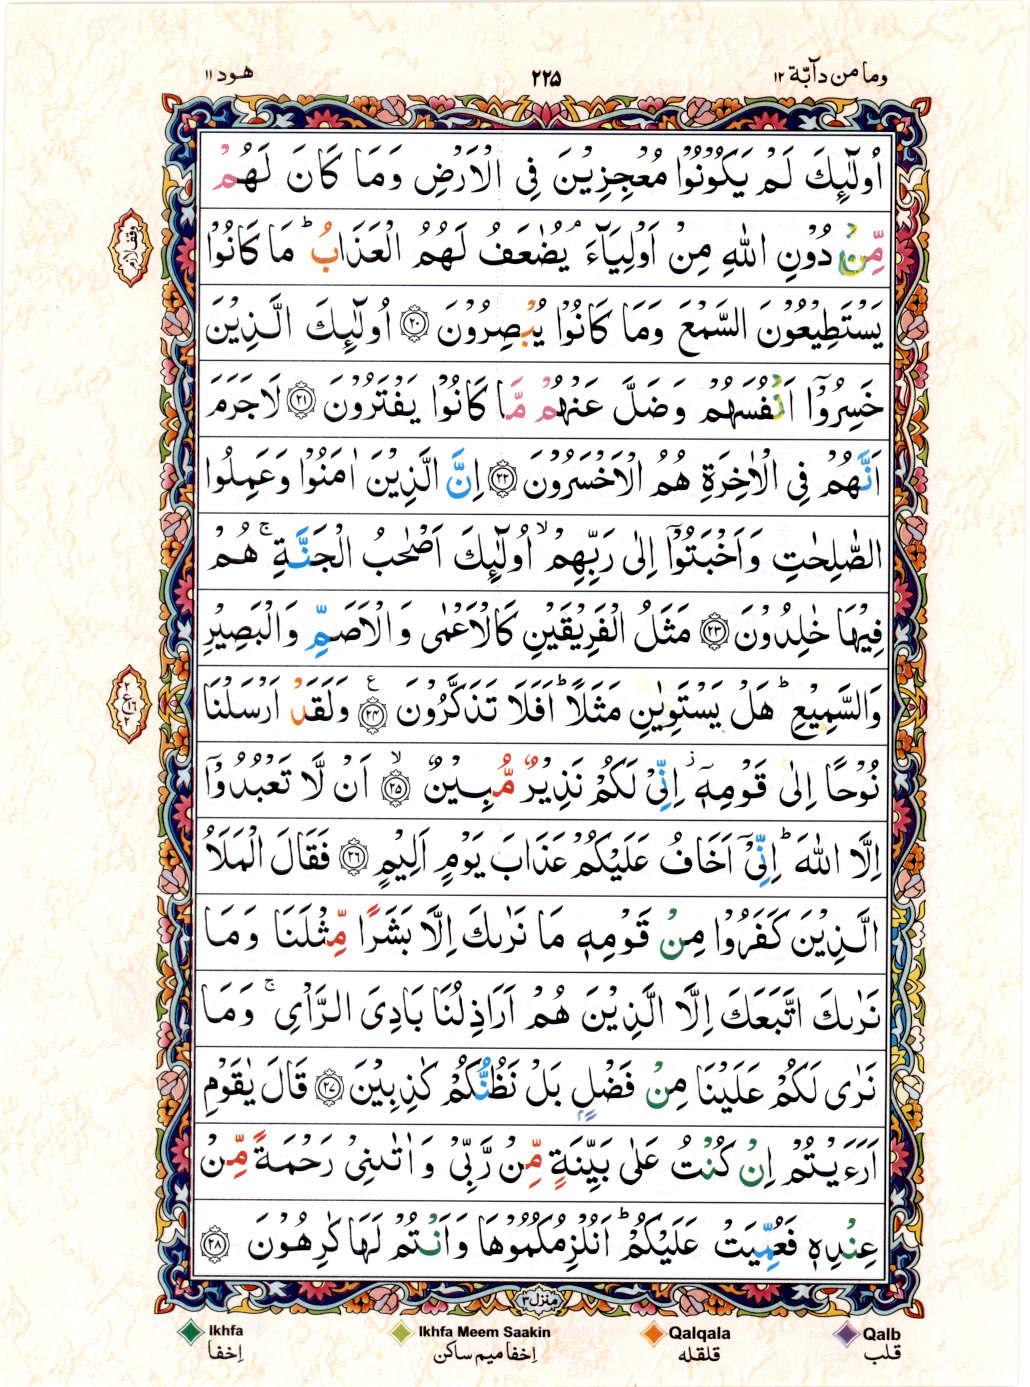 وما من دآبّة ۱۲
۲۲۵
هود ۱۱
اُولٰٓئِكَ لَمْ يَكُوْنُوْا مُعْجِزِيْنَ فِى الْاَرْضِ وَمَا كَانَ لَهُمْ
مِّنْ دُوْنِ اللّٰهِ مِنْ اَوْلِيَآءَ ۘ يُضٰعَفُ لَهُمُ الْعَذَابُ ؕ مَا كَانُوْا
وقف لازم
يَسْتَطِيْعُوْنَ السَّمْعَ وَمَا كَانُوْا يُبْصِرُوْنَ ۝۲۰ اُولٰٓئِكَ الَّذِيْنَ
خَسِرُوْٓا اَنْفُسَهُمْ وَضَلَّ عَنْهُمْ مَّا كَانُوْا يَفْتَرُوْنَ ۝۲۱ لَاجَرَمَ
اَنَّهُمْ فِى الْاٰخِرَةِ هُمُ الْاَخْسَرُوْنَ ۝۲۲ اِنَّ الَّذِيْنَ اٰمَنُوْا وَعَمِلُوا
الصّٰلِحٰتِ وَاَخْبَتُوْٓا اِلٰى رَبِّهِمْ ۙ اُولٰٓئِكَ اَصْحٰبُ الْجَنَّةِ ۚ هُمْ
فِيْهَا خٰلِدُوْنَ ۝۲۳ مَثَلُ الْفَرِيْقَيْنِ كَالْاَعْمٰى وَالْاَصَمِّ وَالْبَصِيْرِ
وَالسَّمِيْعِ ؕ هَلْ يَسْتَوِيٰنِ مَثَلًا ؕ اَفَلَا تَذَكَّرُوْنَ ۝۲۴ ع وَلَقَدْ اَرْسَلْنَا
۲
ع ۱۶
۲
نُوْحًا اِلٰى قَوْمِهٖۤ ز اِنِّىْ لَكُمْ نَذِيْرٌ مُّبِيْنٌ ۝۲۵ ۙ اَنْ لَّا تَعْبُدُوْٓا
اِلَّا اللّٰهَ ؕ اِنِّىْٓ اَخَافُ عَلَيْكُمْ عَذَابَ يَوْمٍ اَلِيْمٍ ۝۲۶ فَقَالَ الْمَلَاُ
الَّذِيْنَ كَفَرُوْا مِنْ قَوْمِهٖ مَا نَرٰىكَ اِلَّا بَشَرًا مِّثْلَنَا وَمَا
نَرٰىكَ اتَّبَعَكَ اِلَّا الَّذِيْنَ هُمْ اَرَاذِلُنَا بَادِىَ الرَّاْىِ ۚ وَمَا
نَرٰى لَكُمْ عَلَيْنَا مِنْ فَضْلٍۭ بَلْ نَظُنُّكُمْ كٰذِبِيْنَ ۝۲۷ قَالَ يٰقَوْمِ
اَرَءَيْتُمْ اِنْ كُنْتُ عَلٰى بَيِّنَةٍ مِّنْ رَّبِّىْ وَاٰتٰىنِىْ رَحْمَةً مِّنْ
عِنْدِهٖ فَعُمِّيَتْ عَلَيْكُمْ ؕ اَنُلْزِمُكُمُوْهَا وَاَنْتُمْ لَهَا كٰرِهُوْنَ ۝۲۸
منزل ۳
Ikhfa Ikhfa Meem Saakin Qalqala Qalb
اِخفا اِخفا میم ساکن قلقله قلب